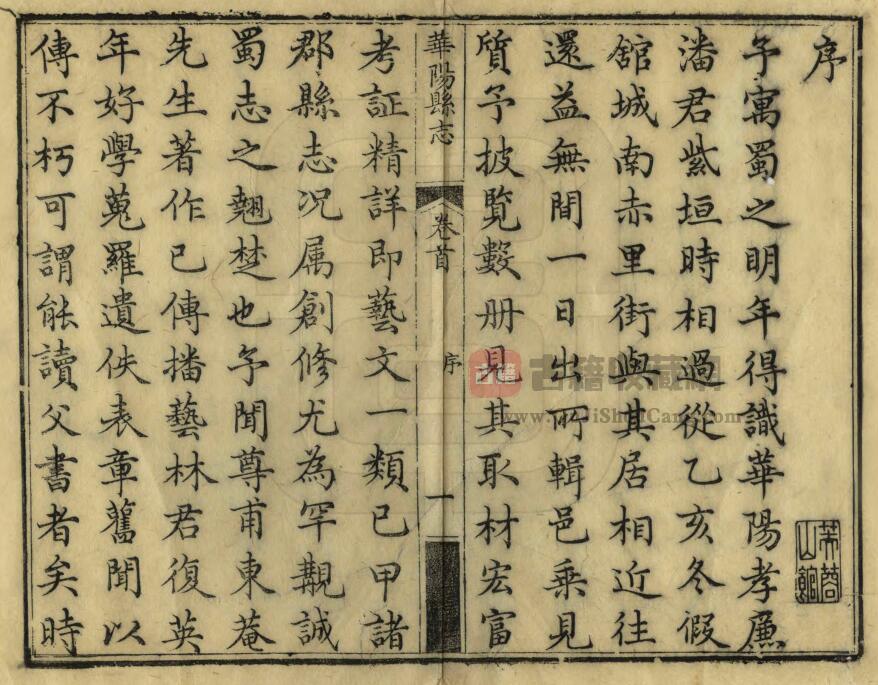 序
予寓蜀之明年得識華陽孝廉
潘君紫垣時相過從乙亥冬假
舘城南赤里街與其居相近往
還益無間一日出所輯邑乗見
質予披覧數册見其取材宏富
華陽縣志 卷首 序 一
考証精詳即藝文一類已甲諸
郡縣志况属創修尤為罕覯誠
蜀志之翹楚也予聞尊甫東菴
先生著作已傳播藝林君復英
年好學蒐羅遺佚表章舊聞以
傳不朽可謂能讀父書者矣時
芙蓉山館
古籍收藏網
www.GuJiShouCang.com